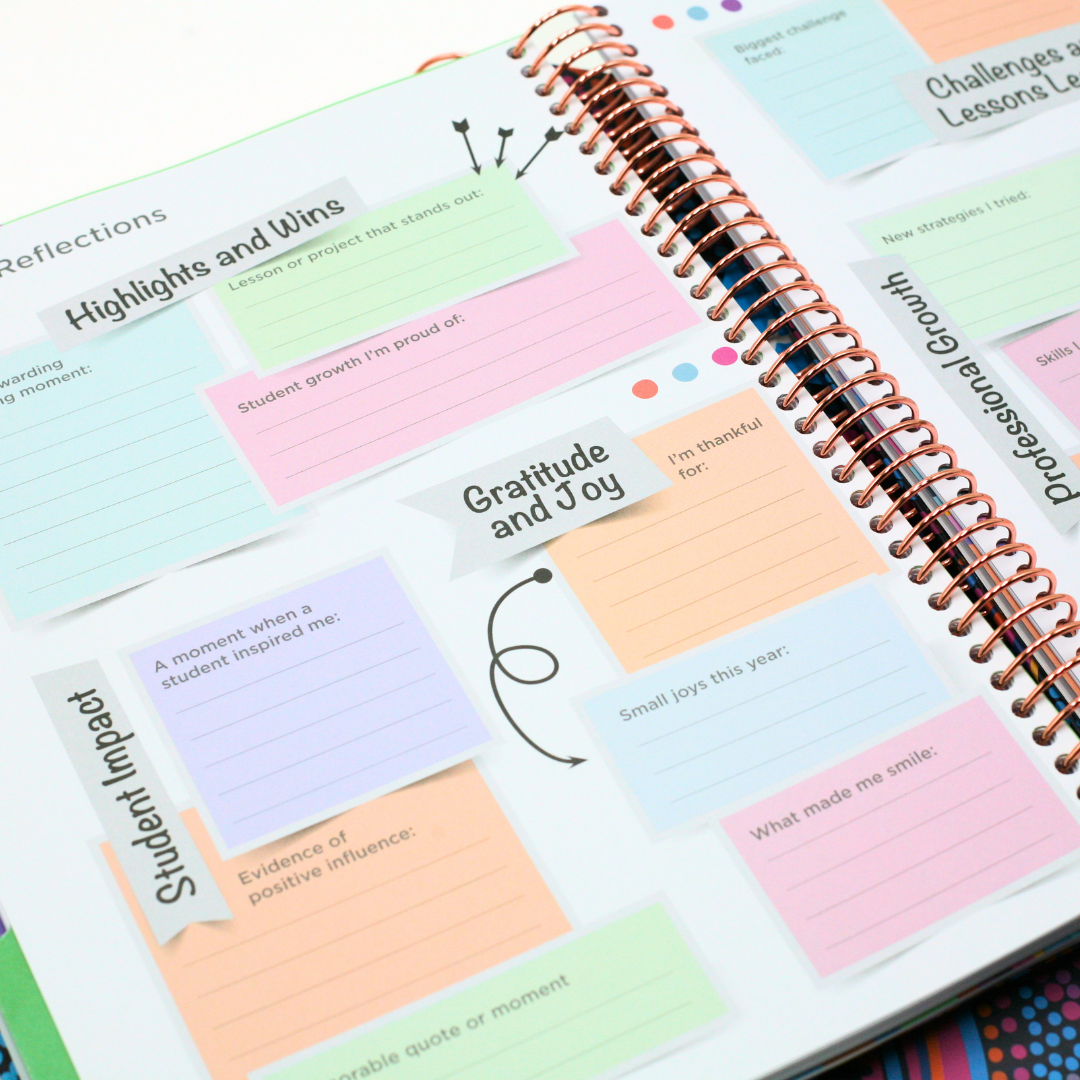 Reflections
Highlights and Wins
Lesson or project that stands out:
Student growth I'm proud of:
moment:
Gratitude
and Joy
I'm thankful
for:
Small joys this year:
What made me smile:
A moment when a
student inspired me:
Student Impact
Evidence of
positive influence:
quote or moment
Biggest challenge
faced:
Challenges
Lessons
New strategies I tried:
Professional Growth
Skills I